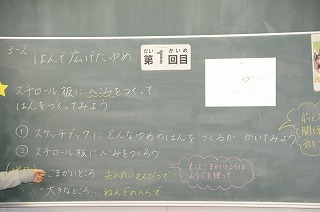 3-2 はんで広げたゆめ
だい かいめ
第1回目
スチロール板にへこみをつくって
はんをつくってみよう
① スケッチブックに どんなゆめのはんをつくるか かいてみよう
② スチロール板にへこみをつくろう
こまかいところ 先の丸いえんぴつで
大きなところ… ねんどのへらで
もっとこまかいところは